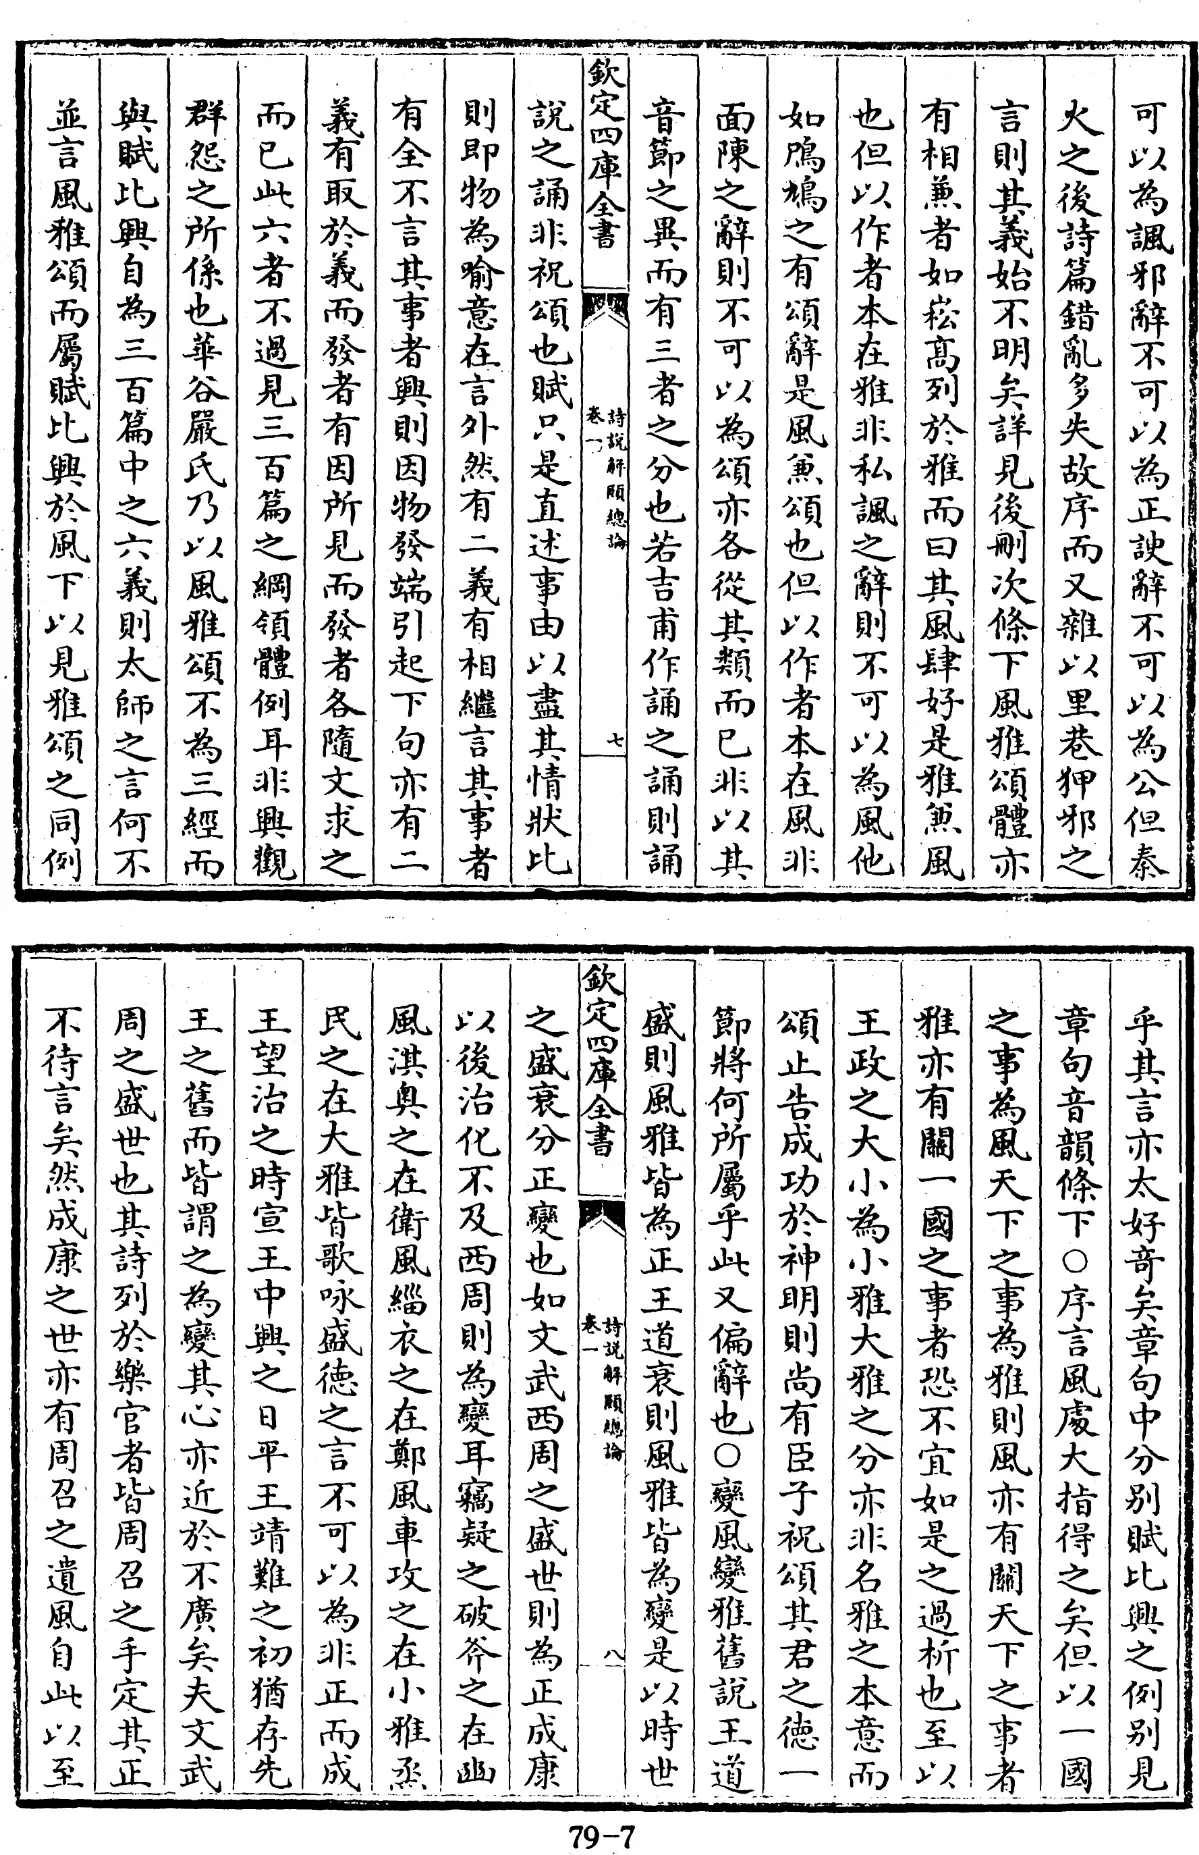 可以為諷邪辭不可以為正諛辭不可以為公但秦
火之後詩篇錯亂多失故序而又雜以里巷狎邪之
言則其義始不明矣詳見後刪次條下風雅頌體亦
有相兼者如崧高列於雅而曰其風肆好是雅兼風
也但以作者本在雅非私諷之辭則不可以為風他
如鳲鳩之有頌辭是風兼頌也但以作者本在風非
面陳之辭則不可以為頌亦各從其類而已非以其
音節之異而有三者之分也若吉甫作誦之誦則誦
欽定四庫全書
詩說解頤總論
卷一
七
說之誦非祝頌也賦只是直述事由以盡其情狀比
則即物為喻意在言外然有二義有相繼言其事者
有全不言其事者興則因物發端引起下句亦有二
義有取於義而發者有因所見而發者各隨文求之
而已此六者不過見三百篇之綱領體例耳非興觀
群怨之所係也華谷嚴氏乃以風雅頌不為三經而
與賦比興自為三百篇中之六義則太師之言何不
並言風雅頌而屬賦比興於風下以見雅頌之同例
乎其言亦太好奇矣章句中分別賦比興之例別見
章句音韻條下○序言風處大指得之矣但以一國
之事為風天下之事為雅則風亦有關天下之事者
雅亦有關一國之事者恐不宜如是之過析也至以
王政之大小為小雅大雅之分亦非名雅之本意而
頌止告成功於神明則尚有臣子祝頌其君之德一
節將何所屬乎此又偏辭也○變風變雅舊說王道
盛則風雅皆為正王道衰則風雅皆為變是以時世
欽定四庫全書
詩說解頤總論
卷一
八
之盛衰分正變也如文武西周之盛世則為正成康
以後治化不及西周則為變耳竊疑之破斧之在豳
風淇奧之在衛風緇衣之在鄭風車攻之在小雅烝
民之在大雅皆歌咏盛德之言不可以為非正而成
王望治之時宣王中興之日平王靖難之初猶存先
王之舊而皆謂之為變其心亦近於不廣矣夫文武
周之盛世也其詩列於樂官者皆周召之手定其正
不待言矣然成康之世亦有周召之遺風自此以至
79-7